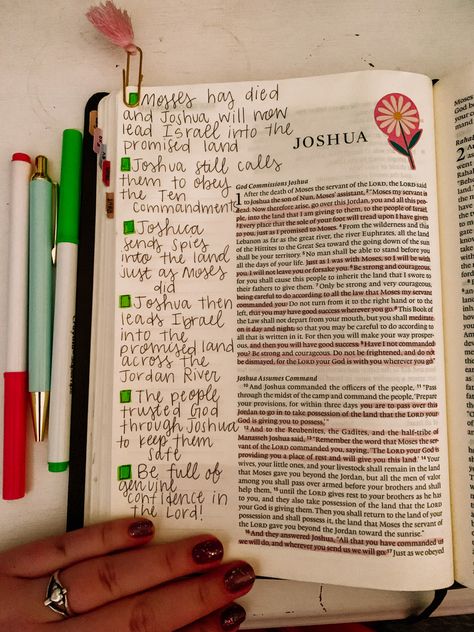 Mosses has died
and Joshua will now
lead Israel into the
promised land
Joshua still calls
them to obey
the Ten
Commandments
Joshua
sends spies
into the land
just as Moses
did
Joshua then
leads Israel
into the
promised land
across the
Jordan River
The people
trusted God
through Joshua
to keep them
safe
Be full of
genuine
confidence in
the Lord!
JOSHUA
God Commissions Joshua
1 After the death of Moses the servant of the LORD, the LORD said
to Joshua the son of Nun, Moses' assistant, 2 "Moses my servant is
dead. Now therefore arise, go over this Jordan, you and all this peo-
ple, into the land that I am giving to them, to the people of Israel.
3 Every place that the sole of your foot will tread upon I have given
to you, just as I promised to Moses. 4 From the wilderness and this
Lebanon as far as the great river, the river Euphrates, all the land
of the Hittites to the Great Sea toward the going down of the sun
shall be your territory. 5 No man shall be able to stand before you
all the days of your life. Just as I was with Moses, so I will be with
you. I will not leave you or forsake you. 6 Be strong and courageous,
for you shall cause this people to inherit the land that I swore to
their fathers to give them. 7 Only be strong and very courageous,
being careful to do according to all the law that Moses my servant
commanded you. Do not turn from it to the right hand or to the
left, that you may have good success wherever you go. 8 This Book of
the Law shall not depart from your mouth, but you shall meditate
on it day and night, so that you may be careful to do according to
all that is written in it. For then you will make your way prosper-
ous, and then you will have good success. 9 Have I not commanded
you? Be strong and courageous. Do not be frightened, and do not
be dismayed, for the LORD your God is with you wherever you go."
Joshua Assumes Command
10 And Joshua commanded the officers of the people, 11 "Pass
through the midst of the camp and command the people, 'Prepare
your provisions, for within three days you are to pass over this
Jordan to go in to take possession of the land that the LORD your
God is giving you to possess.'"
12 And to the Reubenites, the Gadites, and the half-tribe of
Manasseh Joshua said, 13 "Remember the word that Moses the ser-
vant of the LORD commanded you, saying, 'The LORD your God is
providing you a place of rest and will give you this land.' 14 Your
wives, your little ones, and your livestock shall remain in the land
that Moses gave you beyond the Jordan, but all the men of valor
among you shall pass over armed before your brothers and shall
help them, 15 until the LORD gives rest to your brothers as he has
to you, and they also take possession of the land that the LORD
your God is giving them. Then you shall return to the land of your
possession and shall possess it, the land that Moses the servant of
the LORD gave you beyond the Jordan toward the sunrise."
16 And they answered Joshua, "All that you have commanded us
we will do, and wherever you send us we will go. 17 Just as we obeyed
Rahab
2